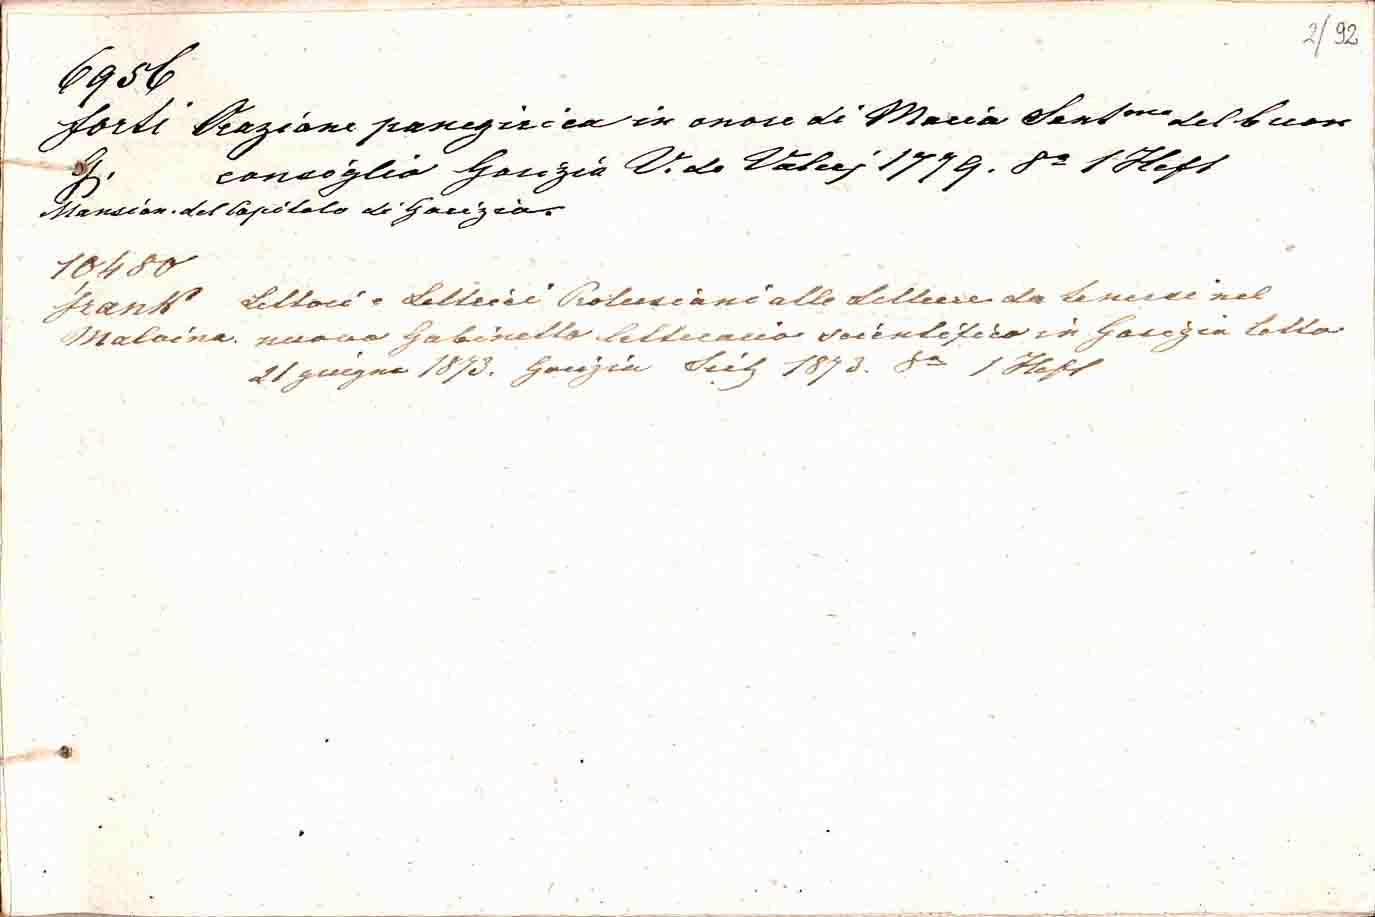 2/92
6956
Forti Orazione panegirica in onore di Maria Sant.ma del buon
G. consiglio Gorizia V. de Valerj 1779. 8° 1 Heft
Mansion. del Capitolo di Gorizia.
10480
Frank Lettori e Lettrici Prolusioni alle letture da tenersi nel
Malvina. nuovo Gabinetto letterario scientifico in Gorizia letta
21 giugno 1873. Gorizia Seitz 1873. 8° 1 Heft